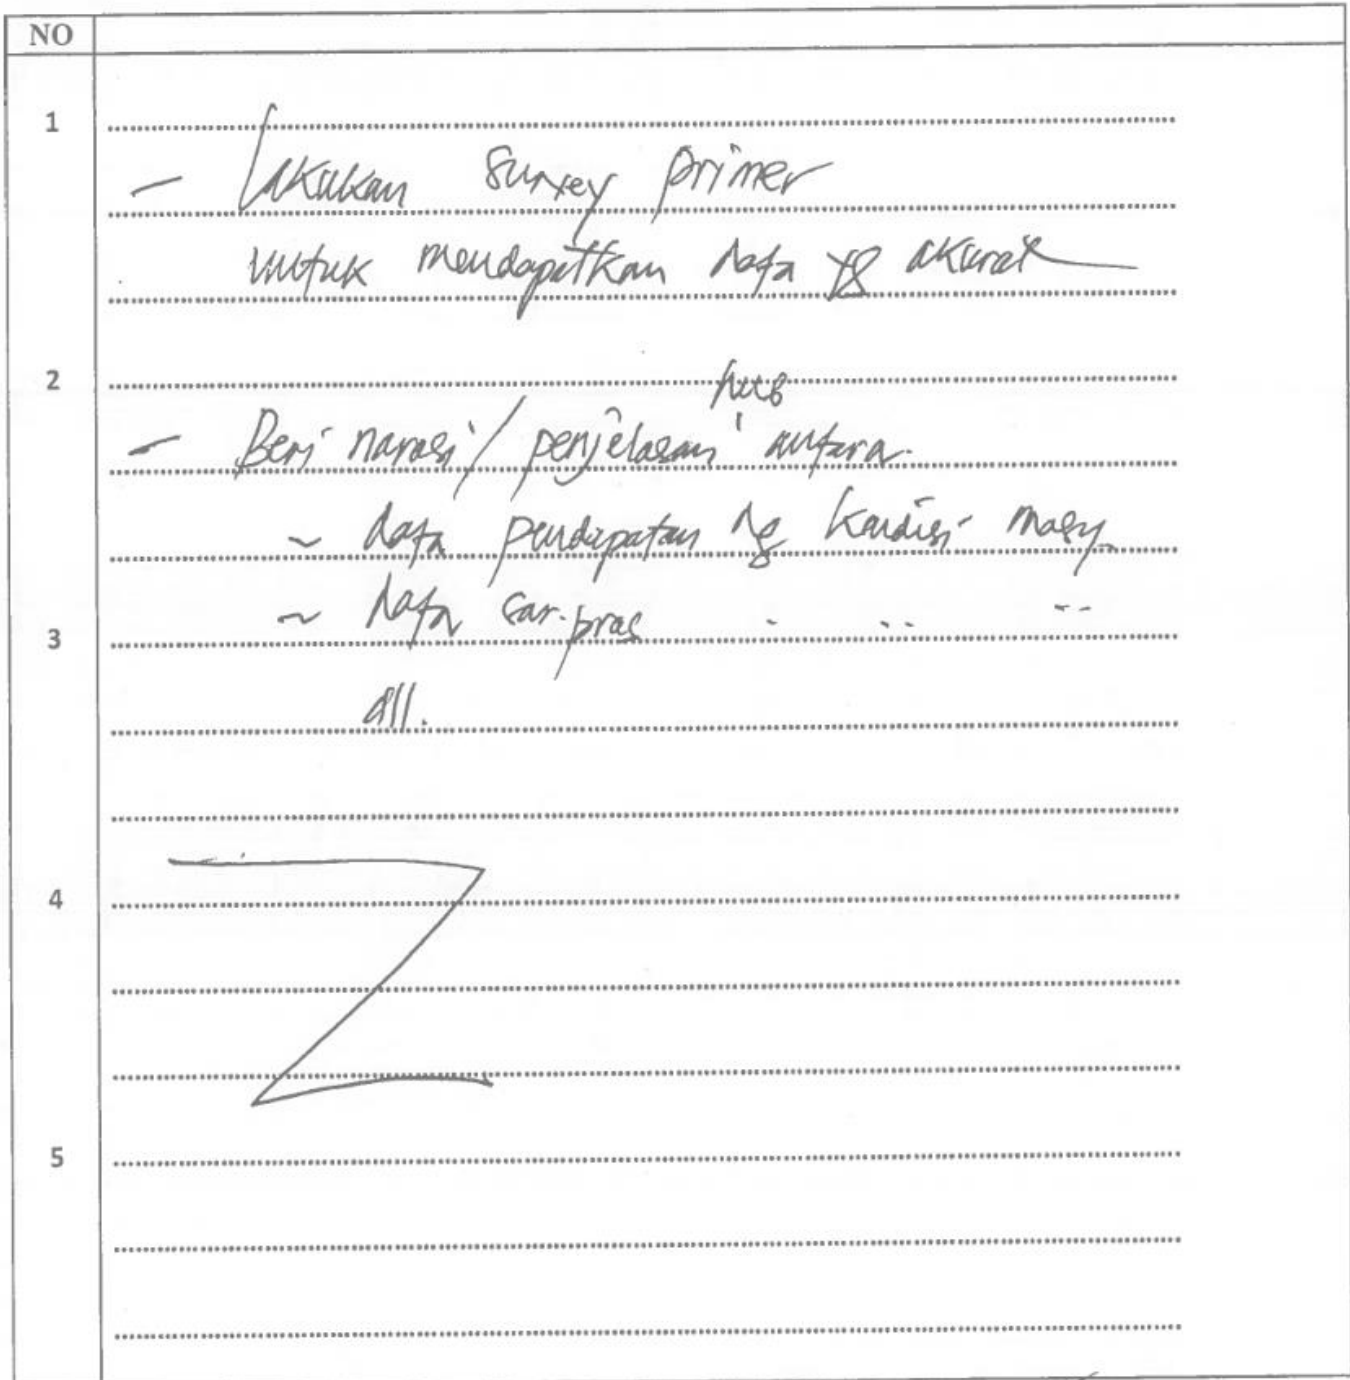 NO
1
- Lakukan survey primer
untuk mendapatkan data yg akurat
2
hub
- Beri narasi / penjelasan antara
~ data pendapatan dg kondisi masy.
~ data sar.pras - -- --
3
dll.
4
5